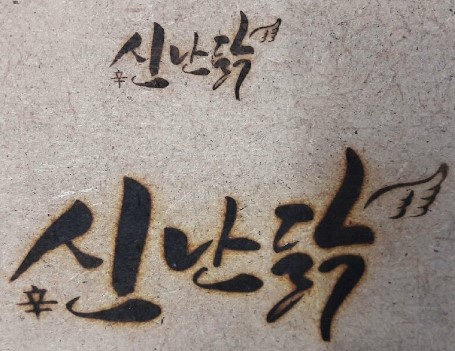 辛 신난닭
辛 신난닭